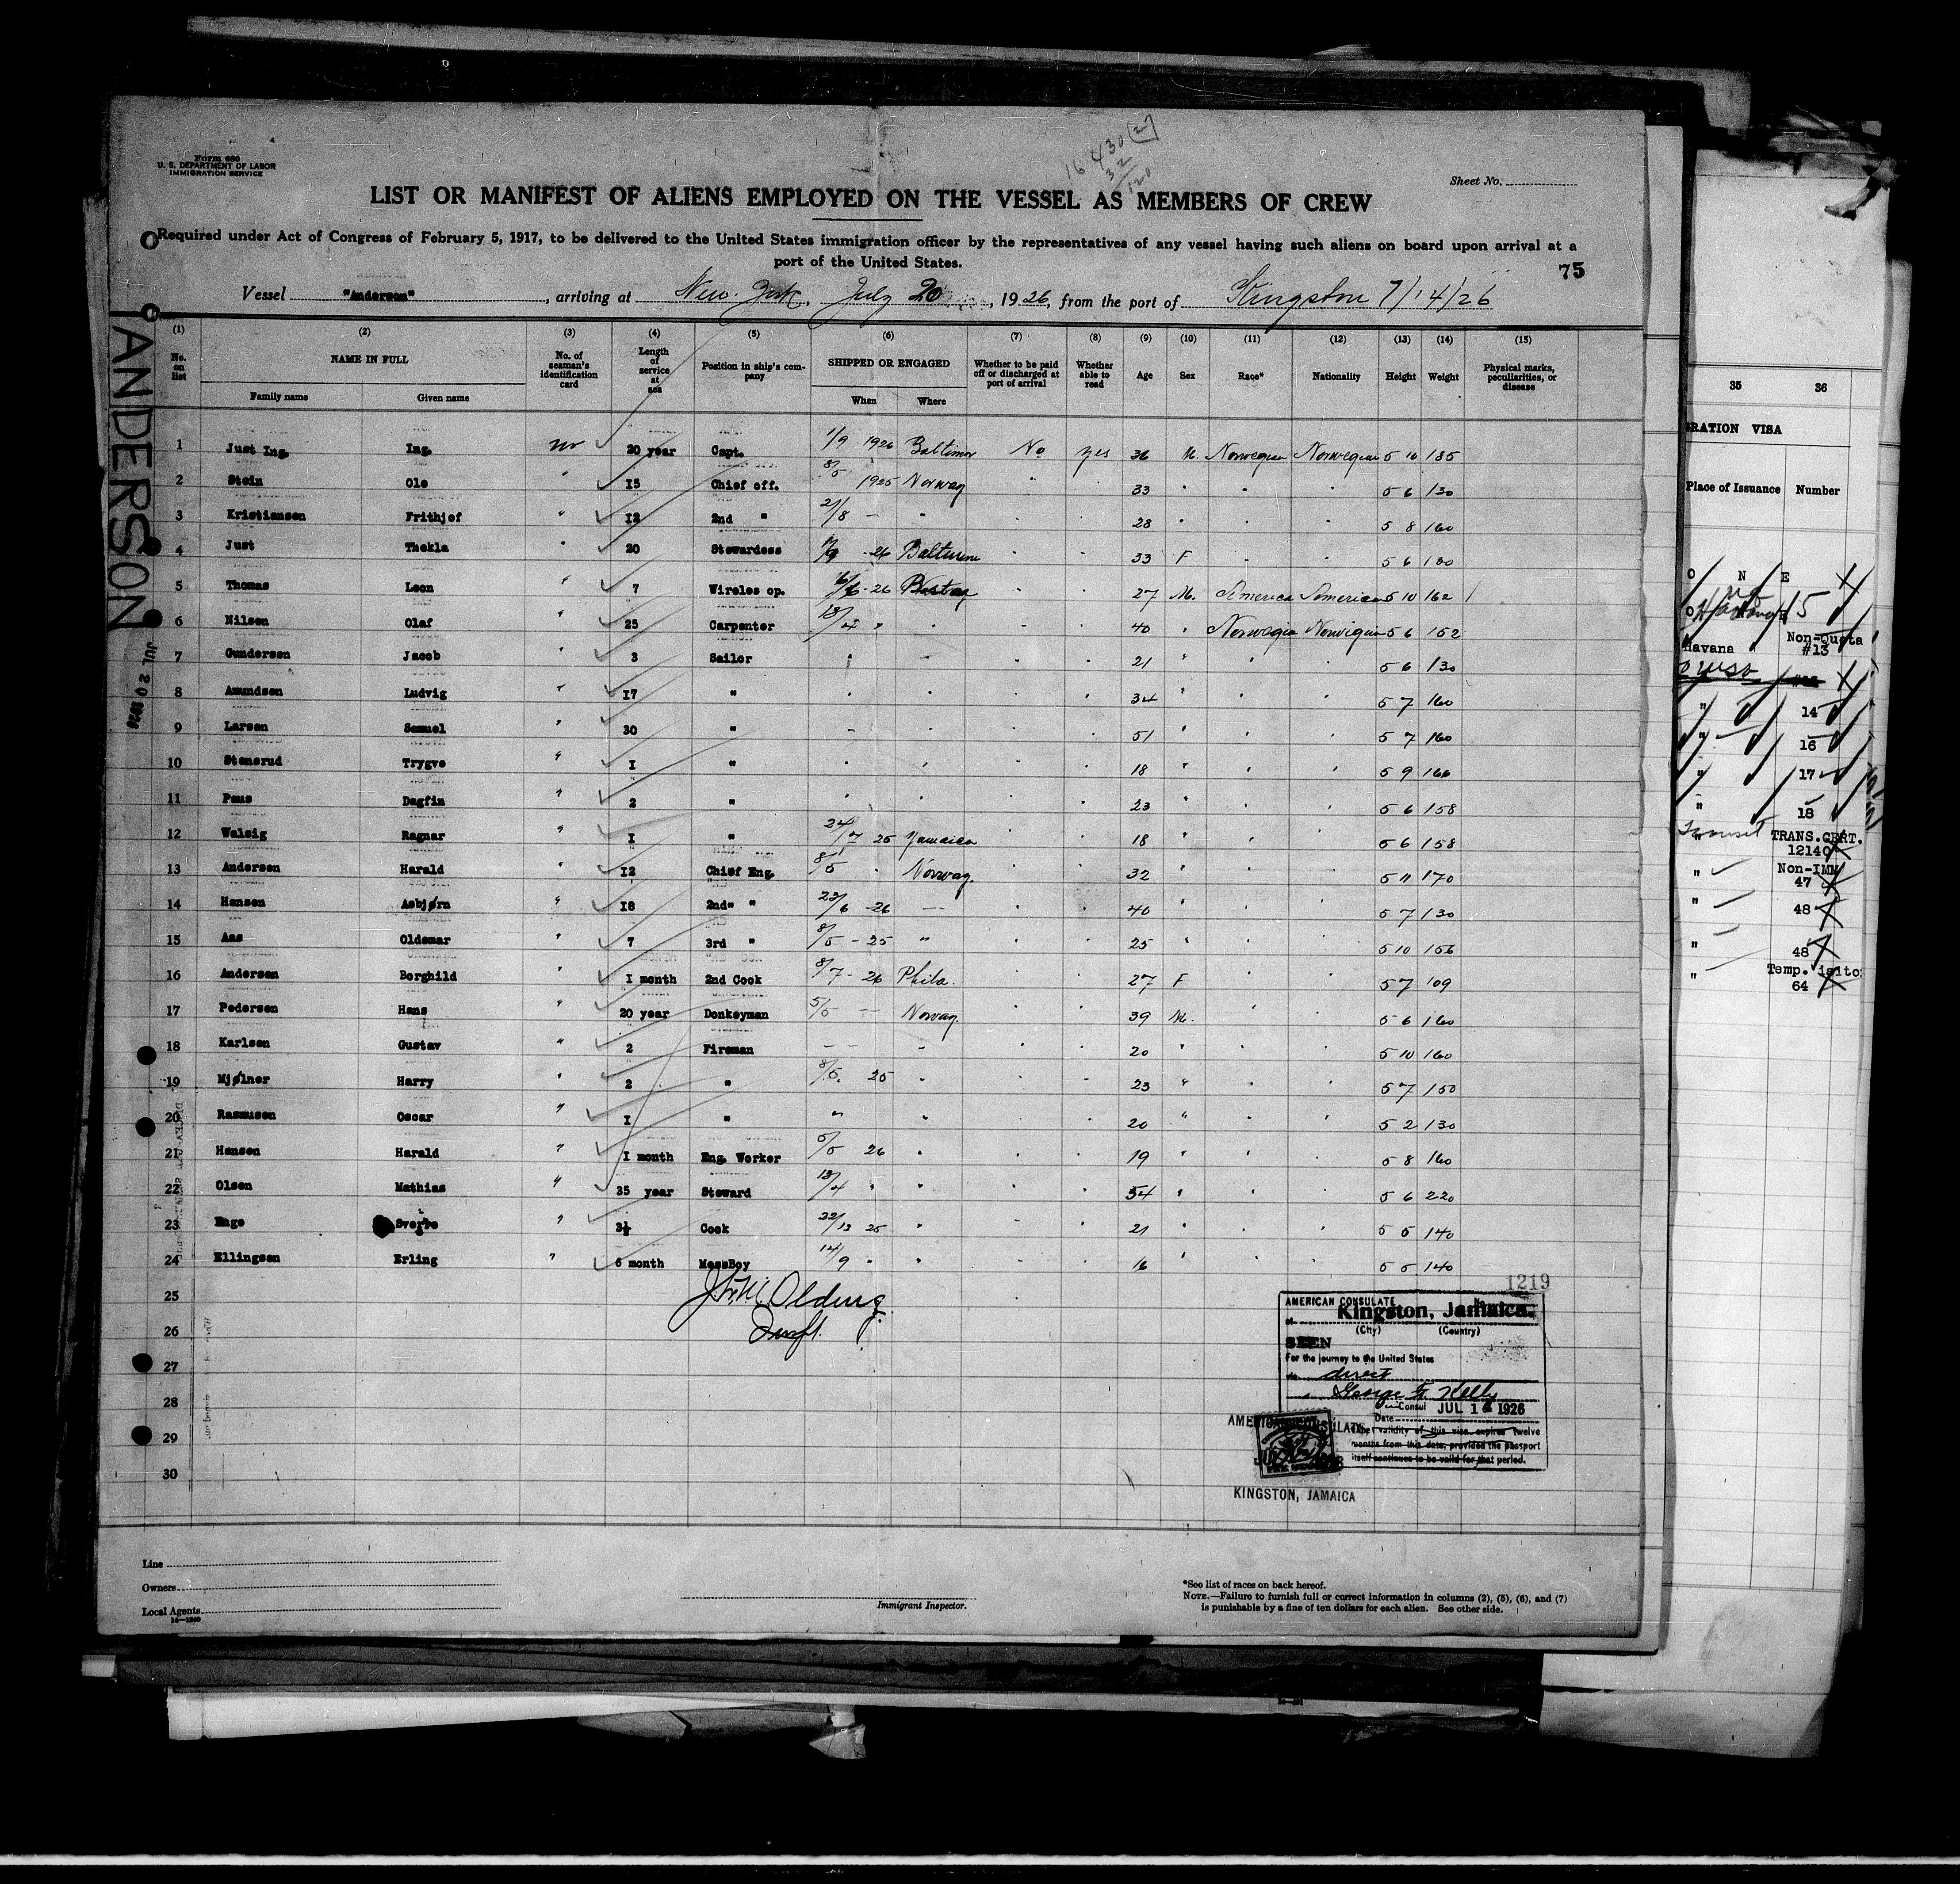 16430 (2)
32
120
Form 680
U. S. DEPARTMENT OF LABOR
IMMIGRATION SERVICE
Sheet No.
LIST OR MANIFEST OF ALIENS EMPLOYED ON THE VESSEL AS MEMBERS OF CREW
Required under Act of Congress of February 5, 1917, to be delivered to the United States immigration officer by the representatives of any vessel having such aliens on board upon arrival at a
port of the United States.
75
Vessel "Anderson", arriving at New York, July 20, 1926, from the port of Kingston 7/14/26
ANDERSON
JUL 20 1926
(1) (2) (3) (4) (5) (6) (7) (8) (9) (10) (11) (12) (13) (14) (15)
No. on list NAME IN FULL Family name Given name No. of seaman's identification card Length of service at sea Position in ship's company SHIPPED OR ENGAGED When Where Whether to be paid off or discharged at port of arrival Whether able to read Age Sex Race* Nationality Height Weight Physical marks, peculiarities, or disease
1 Just Ing. Ing. no 20 year Capt. 1/9 1926 Baltimor No yes 36 M. Norwegian Norwegian 5 10 185
2 Stein Ole " 15 Chief off. 8/5 1925 Norway " " 33 " " " 5 6 130
3 Kristiansen Frithjof " 12 2nd " 21/8 — " " " 28 " " " 5 8 160
4 Just Thekla " 20 Stewardess /9 -26 " " 33 F " " 5 6 130
5 Thomas Leon " 7 Wireles op. -26 " " 27 M. America American 5 10 162
6 Nilsen Olaf " 25 Carpenter 13/4 " " " " 40 " Norwegia Norwigian 5 6 152
7 Gundersen Jacob " 3 Sailor " — " " 21 " " " 5 6 130
8 Amundsen Ludvig " 17 " " " " " 34 " " " 5 7 160
9 Larsen Samuel " 30 " " " " " 51 " " " 5 7 160
10 Stensrud Trygve " 1 " " " " " 18 " " " 5 9 166
11 Paus Dagfin " 2 " " " " " 23 " " " 5 6 158
12 Walsig Ragnar " 1 " 24/7 25 Jamaica " " 18 " " " 5 6 158
13 Andersen Harald " 12 Chief Eng. 8/5 " Norway. " " 32 " " " 5 11 170
14 Hansen Asbjørn " 18 2nd" " 23/6 -26 — " " 40 " " " 5 7 130
15 Aas Oldemar " 7 3rd " 8/5 - 25 " " " 25 " " " 5 10 156
16 Andersen Borghild " 1 month 2nd Cook 8/7 - 26 Phila. " " 27 F " " 5 7 109
17 Pedersen Hans " 20 year Donkeyman 5/5 — Norway. " " 39 M. " " 5 6 160
18 Karlsen Gustav " 2 Fireman — " " " 20 " " " 5 10 160
19 Mjølner Harry " 2 " 8/5. 25 " " " 23 " " " 5 7 150
20 Rasmusen Oscar " 1 " " " " " 20 " " " 5 2 130
21 Hansen Harald " 1 month Eng. Worker 5/5 26 " " " 19 " " " 5 8 160
22 Olsen Mathias " 35 year Steward 13/4 " " " " 54 " " " 5 6 220
23 Enge Sverre " 3½ Cook 22/12 25 " " " 21 " " " 5 5 140
24 Ellingsen Erling " 6 month MessBoy 14/9 " " " " 16 " " " 5 5 140
25
26
27
28
29
30
1219
AMERICAN CONSULATE
at Kingston, Jamaica.
(City) (Country)
SEEN
For the journey to the United States
via direct
George F. Kelly
Consul JUL 1 1926
Date
The validity of this visa expires twelve
months from this date, provided the passport
itself continues to be valid for that period.
AMERICAN CONSULATE
KINGSTON, JAMAICA
Line
Owners
Local Agents
14—1240
Immigrant Inspector.
*See list of races on back hereof.
NOTE.—Failure to furnish full or correct information in columns (2), (5), (6), and (7)
is punishable by a fine of ten dollars for each alien. See other side.
35 36
GRATION VISA
Place of Issuance Number
O N E
15
Non-Quota
Havana #13
" 14
" 16
" 17
" 18
Transit TRANS.CERT.
12140
" Non-IMM
47
" 48
" 48
" Temp.
64